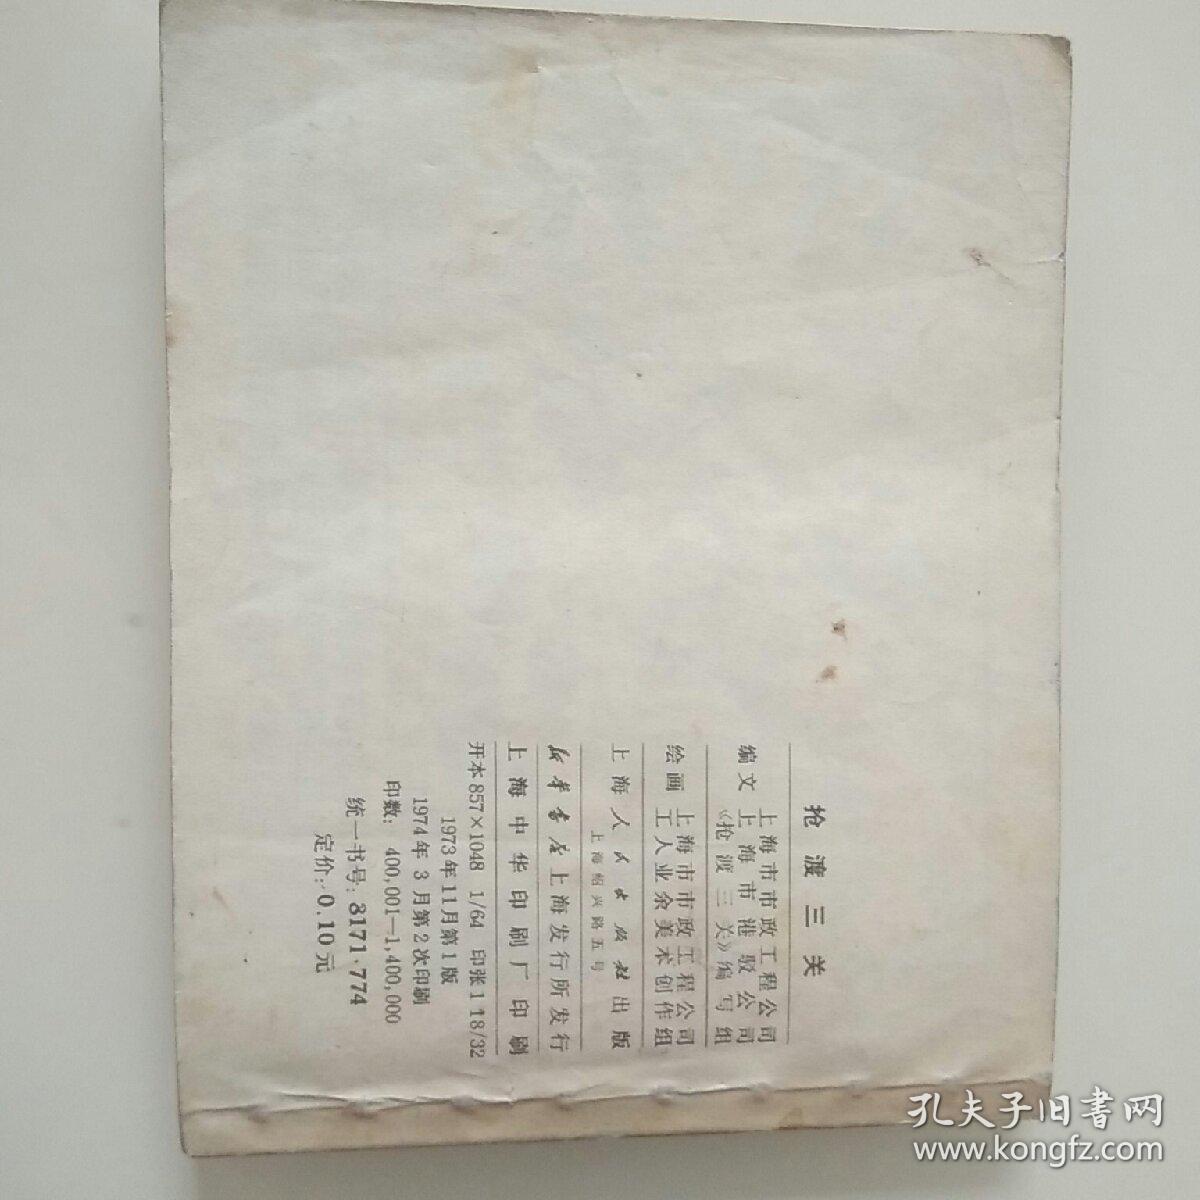 抢渡三关
编文 上海市市政工程公司
上海市港驳公司
《抢渡三关》编写组
绘画 上海市市政工程公司
工人业余美术创作组
上海人民出版社出版
上海绍兴路五号
新华书店上海发行所发行
上海中华印刷厂印刷
开本857×1048 1/64 印张1 18/32
1973年11月第1版
1974年3月第2次印刷
印数：400,001—1,400,000
统一书号：8171·774
定价：0.10元
孔夫子旧书网
www.kongfz.com